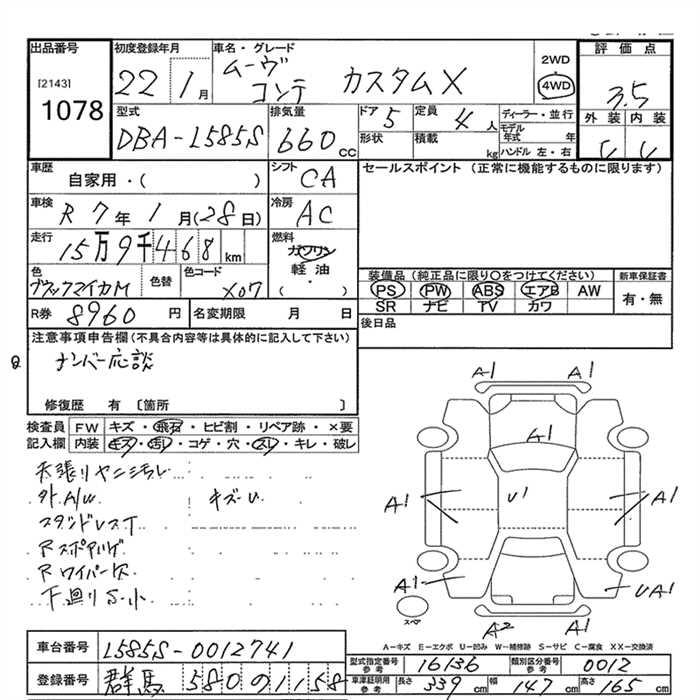 出品番号
[2143]
1078
初度登録年月
22 1月
車名・グレード
ムーヴ
コンテ カスタムX
2WD
4WD
評価点
3.5
外装 内装
型式
DBA-L585S
排気量
660cc
ドア 5
定員 4人
形状
積載 kg
ディーラー・並行
モデル年式 年
ハンドル 左・右
車歴
自家用・( )
シフト
CA
セールスポイント (正常に機能するものに限ります)
車検
R7年1月(28日)
冷房
AC
走行
15万9千468km
燃料
ガソリン
軽油
( ・ )
色
ブラックマイカM
色替
色コード
X07
装備品 (純正品に限り〇をつけてください)
PS PW ABS エアB AW
SR ナビ TV カワ
新車保証書
有・無
R券 8960円
名変期限 月 日
後日品
注意事項申告欄(不具合内容等は具体的に記入して下さい)
ナンバー応談
修復歴 有 〔箇所 〕
検査員記入欄
FW キズ・飛石・ヒビ割・リペア跡・×要
内装 キズ・汚り・コゲ・穴・スレ・キレ・破レ
天張りヤニ汚レ
外A/W キズU
スタンドレスT
Rスポイラーゲ
Rワイパー欠
下廻りS小
A1 A1
A1
A1 U1 A1
A1 UA1
スペア
A2 A1
A-キズ E-エクボ U-凹み W-補修跡 S-サビ C-腐食 XX-交換済
車台番号 L585S-0012741
登録番号 群馬 580 の 1158
型式指定番号 参考 16136
類別区分番号 参考 0012
車庫証明用 参考 長さ 339cm 幅 147cm 高さ 165cm